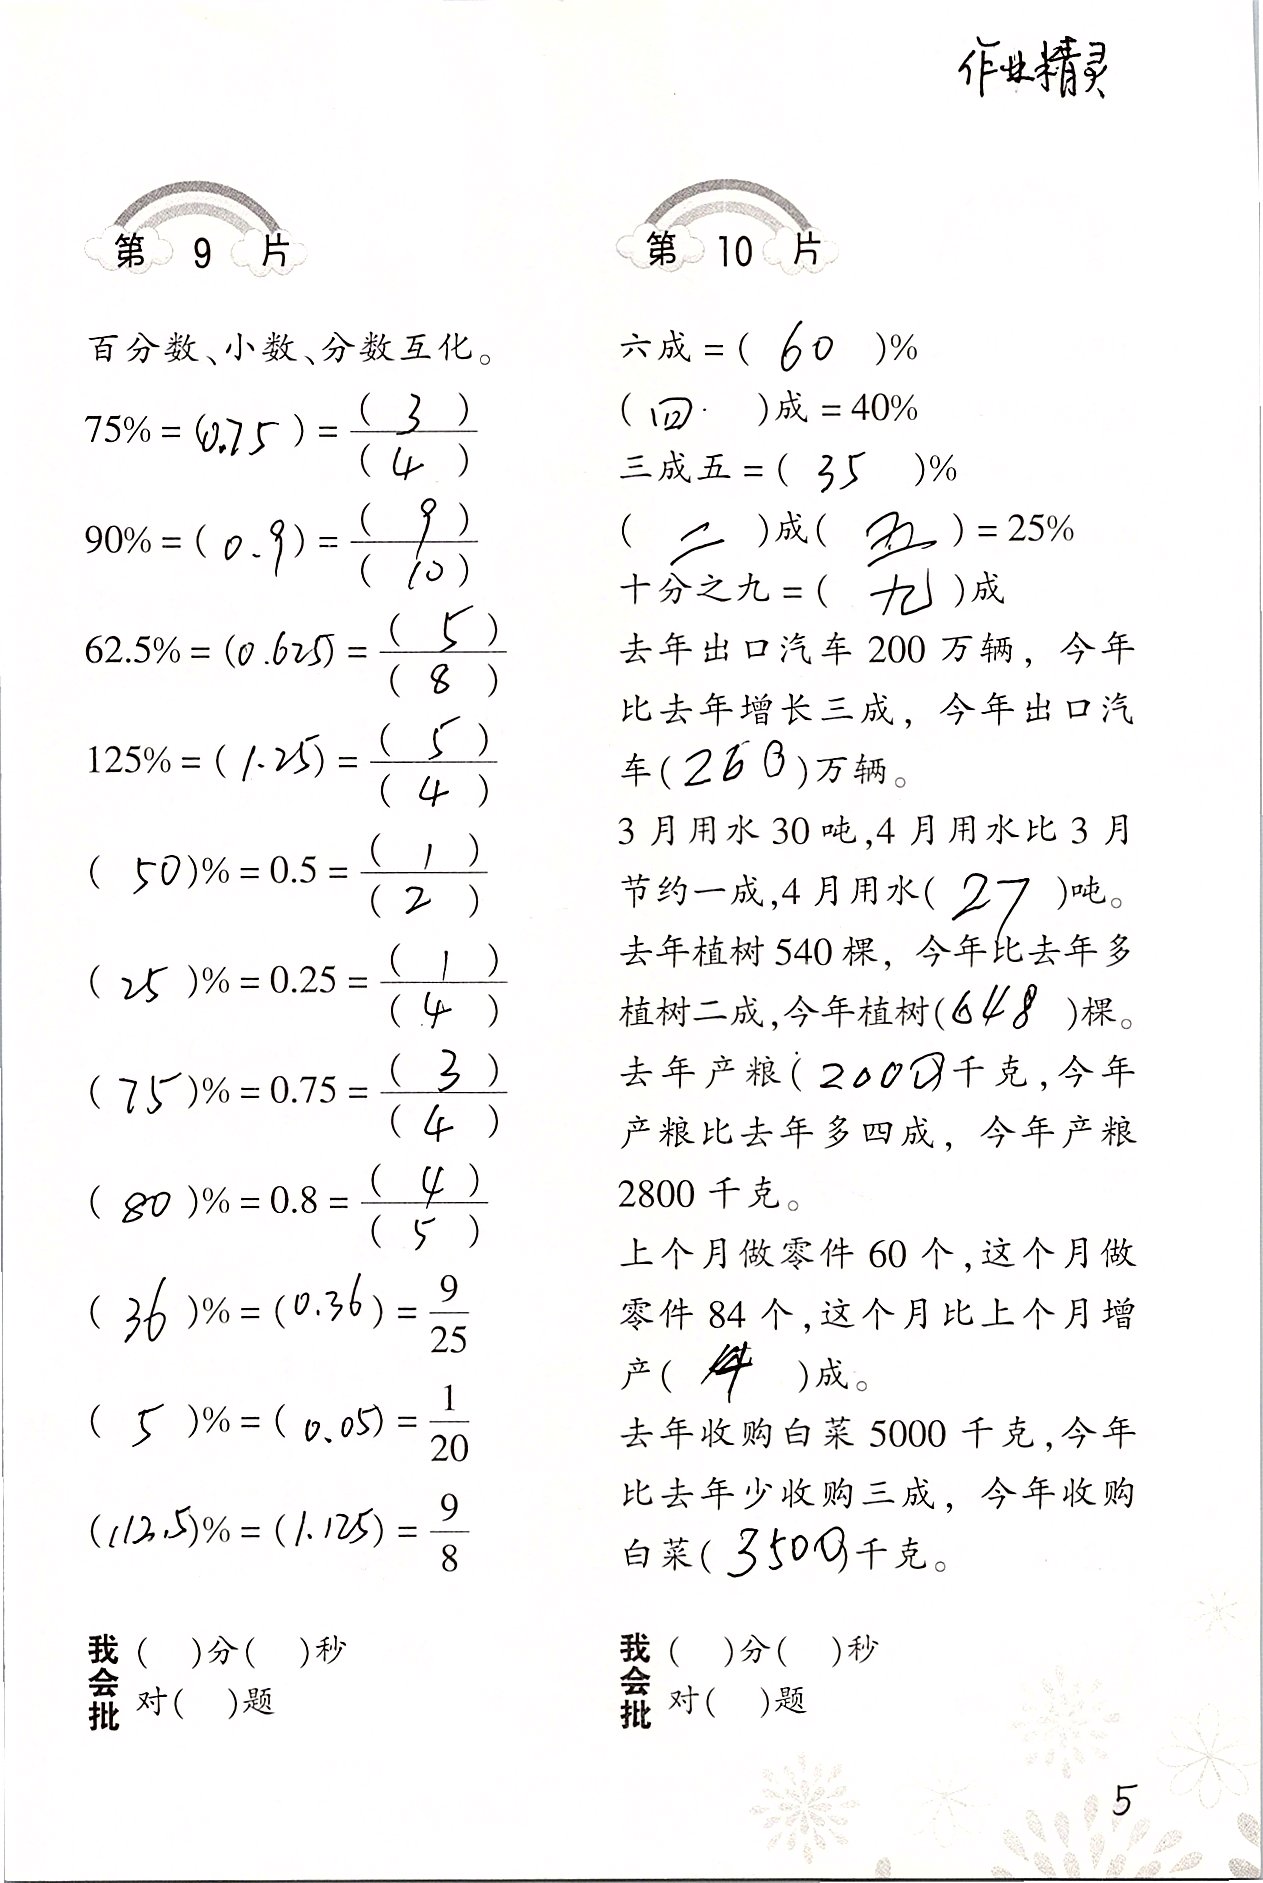 作业精灵
第 9 片
百分数、小数、分数互化。
75% = (0.75) = (3)/(4)
90% = (0.9) = (9)/(10)
62.5% = (0.625) = (5)/(8)
125% = (1.25) = (5)/(4)
(50)% = 0.5 = (1)/(2)
(25)% = 0.25 = (1)/(4)
(75)% = 0.75 = (3)/(4)
(80)% = 0.8 = (4)/(5)
(36)% = (0.36) = 9/25
(5)% = (0.05) = 1/20
(112.5)% = (1.125) = 9/8
我会批
( )分( )秒
对( )题
第 10 片
六成 = (60)%
(四)成 = 40%
三成五 = (35)%
(二)成(五) = 25%
十分之九 = (九)成
去年出口汽车 200 万辆, 今年
比去年增长三成, 今年出口汽
车(260)万辆。
3 月用水 30 吨,4 月用水比 3 月
节约一成,4 月用水(27)吨。
去年植树 540 棵, 今年比去年多
植树二成,今年植树(648)棵。
去年产粮(2000)千克,今年
产粮比去年多四成, 今年产粮
2800 千克。
上个月做零件 60 个,这个月做
零件 84 个,这个月比上个月增
产(4)成。
去年收购白菜 5000 千克,今年
比去年少收购三成, 今年收购
白菜(3500)千克。
我会批
( )分( )秒
对( )题
5